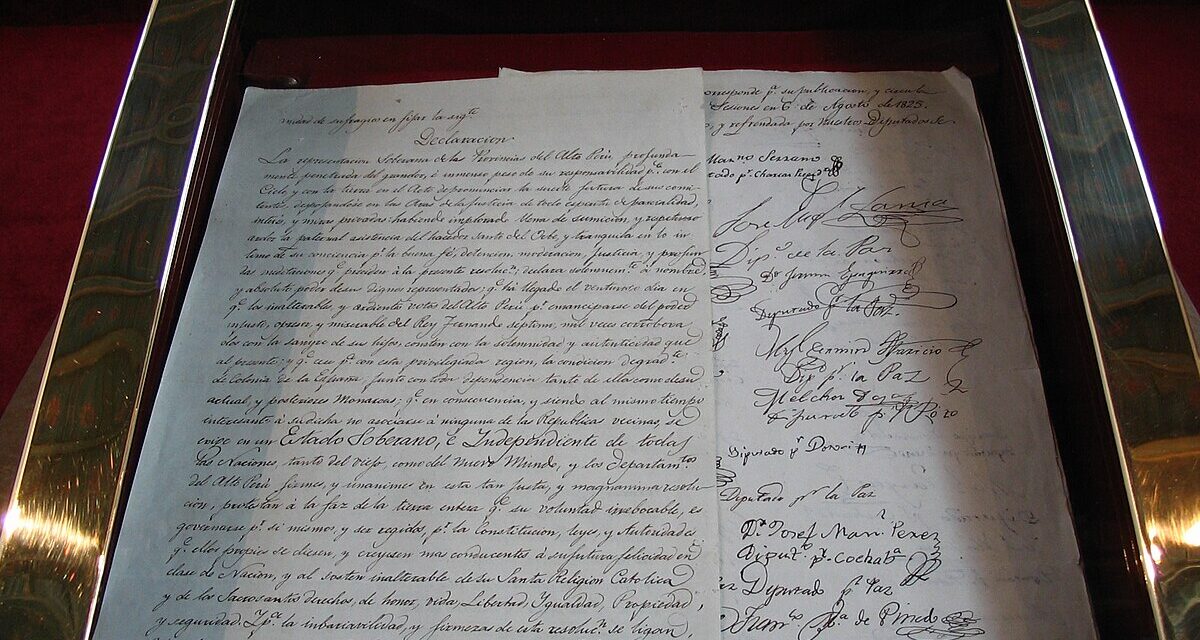 unidad de sufragios en fijar la sigte
Declaracion
La representacion Soberana de las Provincias del Alto Perú, profunda-
mente penetrada del grandor, é inmenso peso de su responsabilidad pa. con el
Cielo, y con la tierra, en el Acto de pronunciar la suerte futura de sus comi-
tentes, despojandose en las Aras de la justicia de todo espiritu de parcialidad,
interés, y miras privadas; habiendo implorado llena de sumicion, y respetuoso
ardor la paternal asistencia del hacedor Santo del Orbe, y tranquila en lo in-
timo de su conciencia pr. la buena fé, detencion, moderacion, justicia, y profun-
das meditaciones qe. preciden á la presente resolucn., declara solemnemte. á nombre,
y absoluto poder de sus dignos representados; qe. ha llegado el venturoso dia en
qe. los inalterables, y ardientes votos del Alto Perú pr. emanciparse del poder
injusto, opresor, y miserable del Rey Fernando septimo, mil veces corrobora-
dos con la sangre de sus hijos, consten con la solemnidad y autenticidad que
al presente; y qe. cese pa. con esta privilegiada region, la condicion degradte.
de Colonia de la España, junto con toda dependencia tanto de ella como de su
actual, y posteriores Monarcas; qe. en consecuencia, y siendo al mismo tiempo
interesante á su dicha no asociarse á ninguna de las Republicas vecinas, se
erige en un Estado Soberano, é Independiente de todas
las Naciones, tanto del viejo, como del Nuevo Mundo, y los departamtos.
del Alto Perú firmes, y unanimes en esta tan justa, y magnanima resolu-
cion, protestan á la faz de la tierra entera qe. su voluntad irrebocable, es
governarse pr. si mismos, y ser regidos, pr. la Constitucion, leyes, y Autoridades
qe. ellos propios se diesen, y creyesen mas conducentes á su futura felicidad en
clase de Nacion, y al sosten inalterable de su Santa Religion Catolica
y de los Sacrosantos derechos, de honor, vida, Libertad, Igualdad, Propiedad,
y seguridad. Y pa. la inbariavilidad, y firmeza de esta resolucn. se ligan,
orresponde pa. su publicacion, y circula
Sesiones en 6 de Agosto de 1825.
y refrendada por nuestros Diputados Se
Marno Serrano
tado pr. Charcas
José Migl. Lanza
Dipo. de la Paz
Diputado pr. la Paz.
Dipo. pr. la Paz
Melchor
Diputado pr. Po
Diputado pr. Potosi
Diputado pr. la Paz
Dr. Josef Manl. Perez
Diputo. pr. Cochaba
Diputado pr. Paz